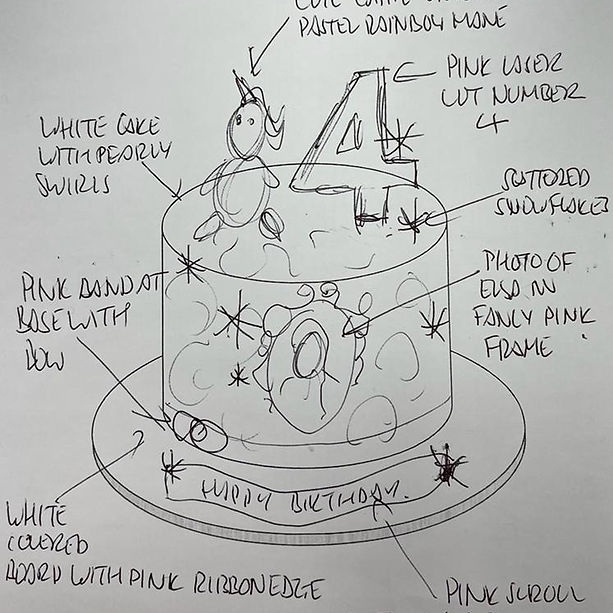 PASTEL RAINBOW MANE
PINK LASER
CUT NUMBER
4
4
WHITE CAKE
WITH PEARLY
SWIRLS
SCATTERED
SNOWFLAKES
PHOTO OF
ELSA IN
FANCY PINK
FRAME
PINK BAND AT
BASE WITH
BOW
HAPPY BIRTHDAY
WHITE
COVERED
BOARD WITH PINK RIBBON EDGE
PINK SCROLL